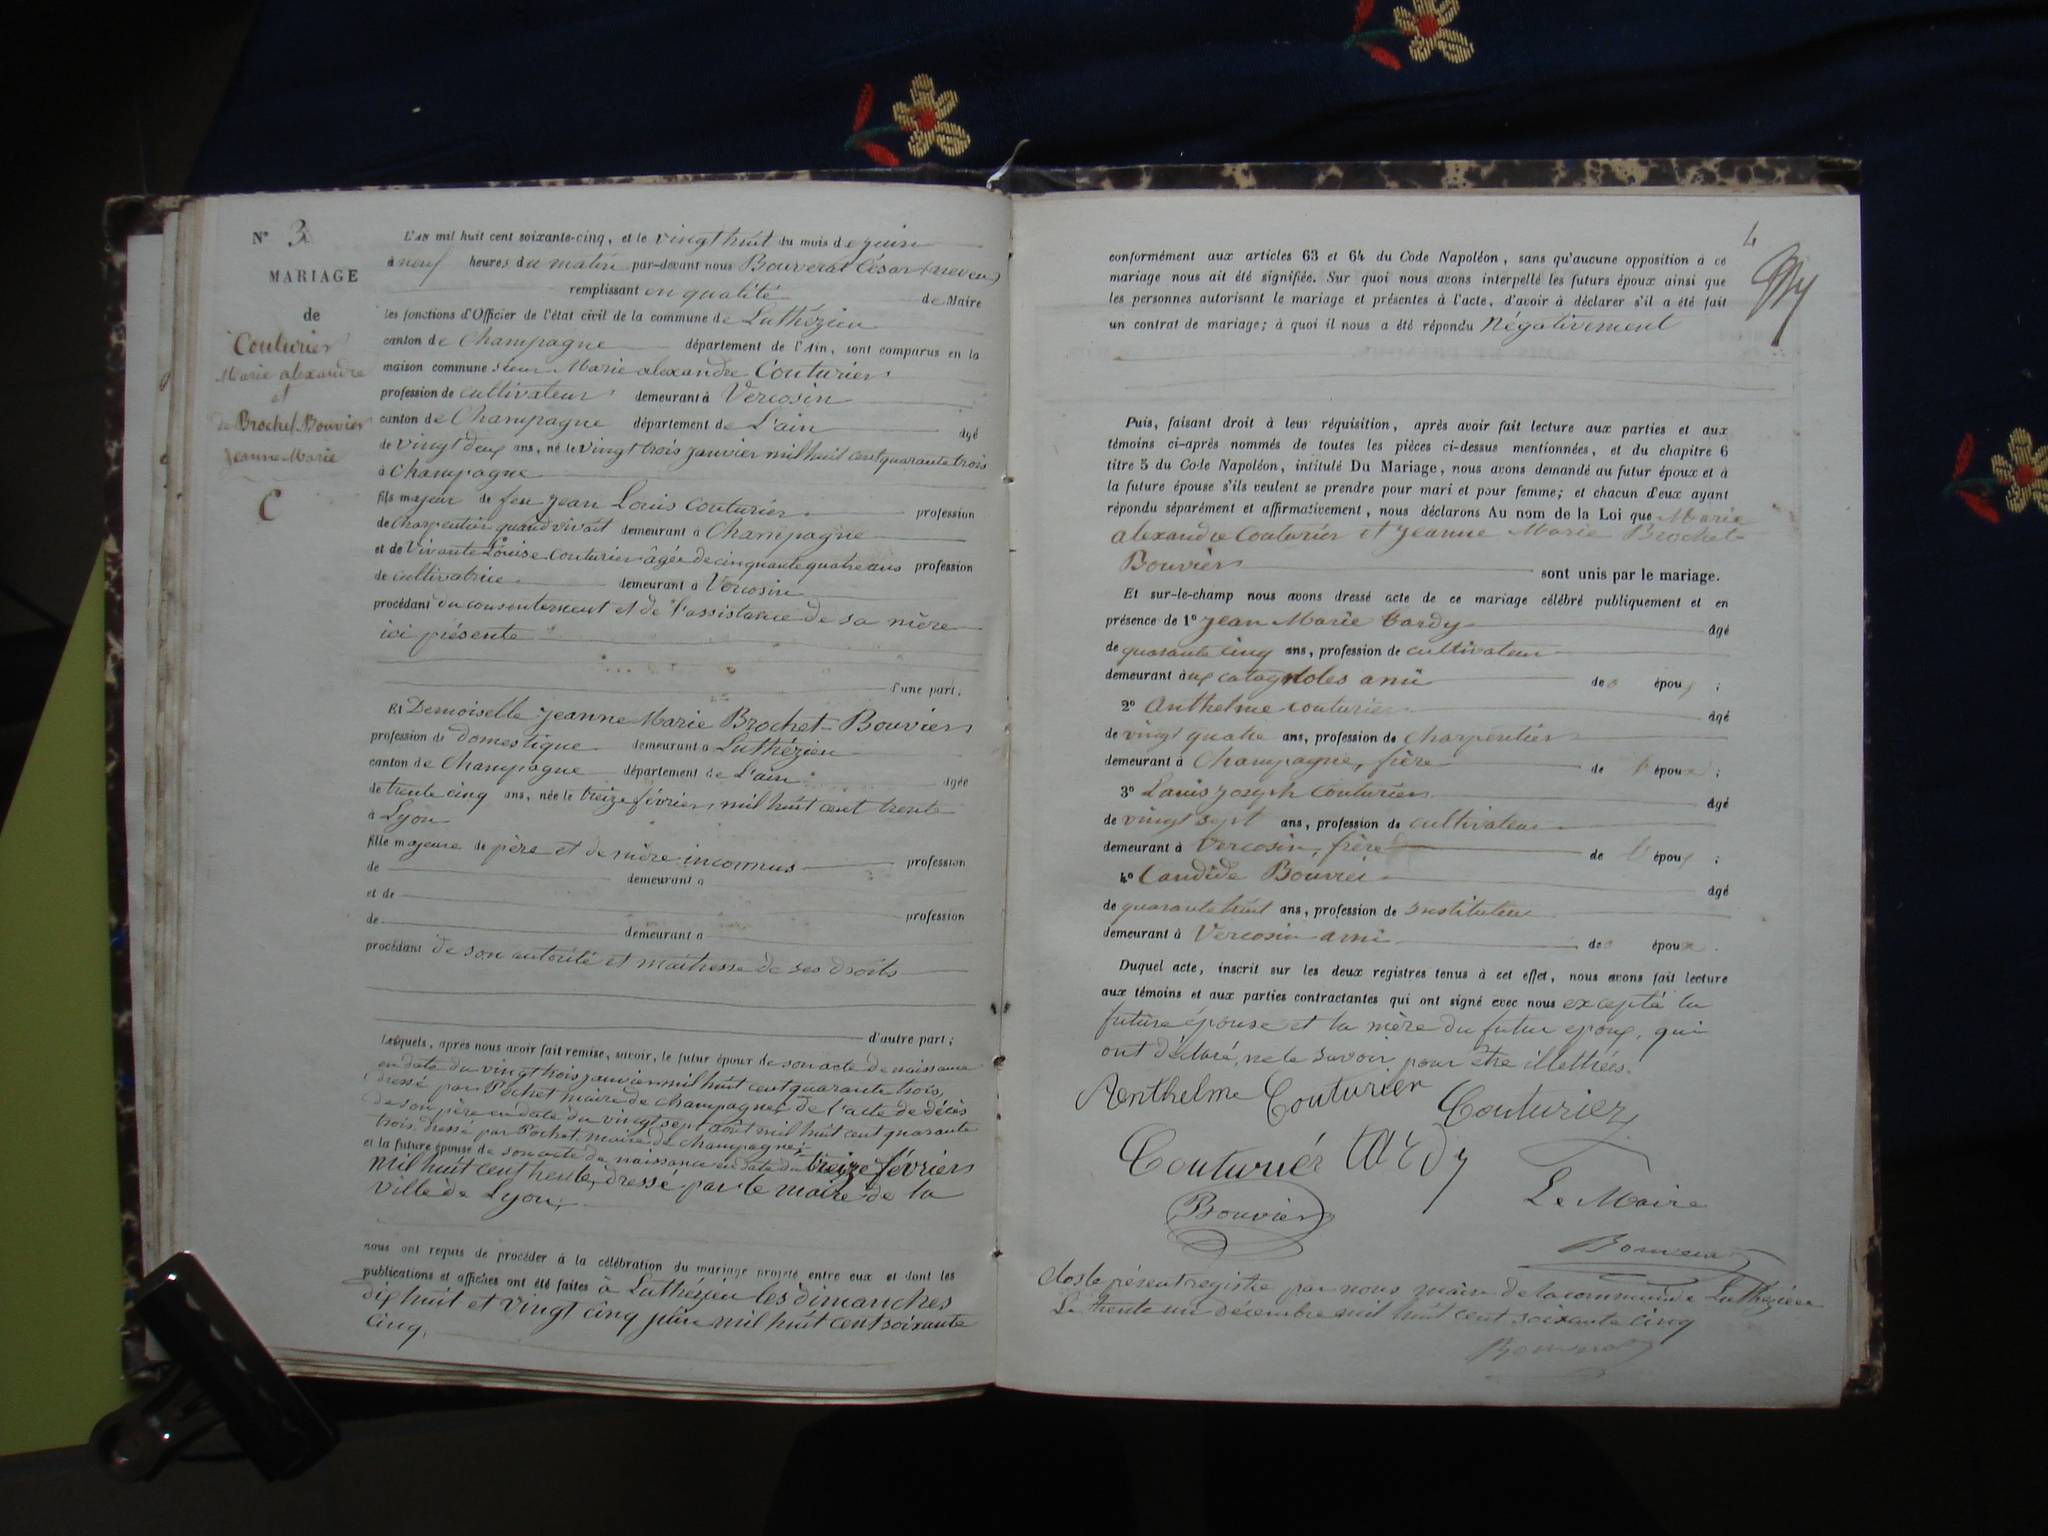 N° 3
MARIAGE
de
Couturier
Marie alexandre
et
de Brochet Bouvier
Jeanne Marie
C
L'AN mil huit cent soixante-cinq, et le vingt huit du mois de juin
à neuf heures du matin par-devant nous Bouverat César (neveu)
remplissant en qualité de Maire
les fonctions d'Officier de l'état civil de la commune de Luthézieu
canton de Champagne département de l'Ain, sont comparus en la
maison commune sieur Marie alexandre Couturier
profession de cultivateur demeurant à Vercosin
canton de Champagne département de L'ain âgé
de vingt deux ans, né le vingt trois janvier mil huit cent quarante trois
à Champagne
fils majeur de feu jean Louis Couturier profession
de charpentier quand vivait demeurant à Champagne
et de Vivante Louise Couturier âgée de cinquante quatre ans profession
de cultivatrice demeurant à Vercosin
procédant du consentement et de l'assistance de sa mère
ici présente
d'une part.
Et Demoiselle jeanne Marie Brochet-Bouvier
profession de domestique demeurant à Luthézieu
canton de Champagne département de L'ain âgée
de trente cinq ans, née le treize février mil huit cent trente
à Lyon
fille majeure de père et de mère inconnus profession
de demeurant à
et de
de profession
demeurant à
procédant de son autorité et maîtresse de ses droits
d'autre part;
Lesquels, après nous avoir fait remise, savoir, le futur époux de son acte de naissance
en date du vingt trois janvier mil huit cent quarante trois,
dressé par Pochet maire de champagne; de l'acte de décès
de son père en date du vingt sept août mil huit cent quarante
trois dressé par Pochet maire de Champagne;
et la future épouse de son acte de naissance en date du treize février
mil huit cent trente, dressé par le maire de la
ville de Lyon;
nous ont requis de procéder à la célébration du mariage projeté entre eux et dont les
publications et affiches ont été faites à Luthézieu les dimanches
dix huit et vingt cinq juin mil huit cent soixante
cinq,
4
conformément aux articles 63 et 64 du Code Napoléon, sans qu'aucune opposition à ce
mariage nous ait été signifiée. Sur quoi nous avons interpellé les futurs époux ainsi que
les personnes autorisant le mariage et présentes à l'acte, d'avoir à déclarer s'il a été fait
un contrat de mariage; à quoi il nous a été répondu Négativement
Puis, faisant droit à leur réquisition, après avoir fait lecture aux parties et aux
témoins ci-après nommés de toutes les pièces ci-dessus mentionnées, et du chapitre 6
titre 5 du Code Napoléon, intitulé Du Mariage, nous avons demandé au futur époux et à
la future épouse s'ils veulent se prendre pour mari et pour femme; et chacun d'eux ayant
répondu séparément et affirmativement, nous déclarons Au nom de la Loi que Marie
alexandre Couturier et jeanne Marie Brochet-
Bouvier sont unis par le mariage.
Et sur-le-champ nous avons dressé acte de ce mariage célébré publiquement et en
présence de 1° jean Marie Tardy âgé
de quarante cinq ans, profession de cultivateur
demeurant aux catagnoles ami de époux;
2° Anthelme Couturier âgé
de vingt quatre ans, profession de charpentier
demeurant à Champagne, frère de l'époux;
3° Louis joseph Couturier âgé
de vingt sept ans, profession de cultivateur
demeurant à Vercosin, frère de l'époux;
4° Candide Bouvier âgé
de quarante huit ans, profession de instituteur
demeurant à Vercosin ami de époux.
Duquel acte, inscrit sur les deux registres tenus à cet effet, nous avons fait lecture
aux témoins et aux parties contractantes qui ont signé avec nous excepté la
future épouse et la mère du futur époux, qui
ont déclaré, ne le savoir pour être illettrées.
Anthelme Couturier Couturier
Couturier tardy
Bouvier Le Maire
Bouverat
Clos le présent registre par nous maire de la commune de Luthézieu
Le trente un décembre mil huit cent soixante cinq
Bouverat